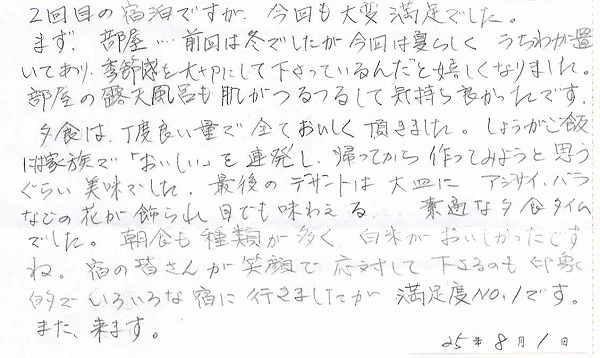 2回目の宿泊ですが、今回も大変満足でした。
まず、部屋…前回は冬でしたが今回は夏らしく うちわが置
いてあり、季節感を大切にして下さっているんだと嬉しくなりました。
部屋の露天風呂も肌がつるつるして気持ち良かったです。
夕食は、丁度良い量で全ておいしく頂きました。しょうがご飯
は家族で「おいしい」を連発し、帰ってから作ってみようと思う
ぐらい美味でした。最後のデザートは大皿に アジサイ、バラ
などの花が飾られ目でも味わえる 素適な夕食タイム
でした。朝食も種類が多く、白米がおいしかったです
ね。宿の皆さんが笑顔で応対して下さるのも印象
的で いろいろな宿に行きましたが 満足度NO.1です。
また、来ます。
25年8月1日